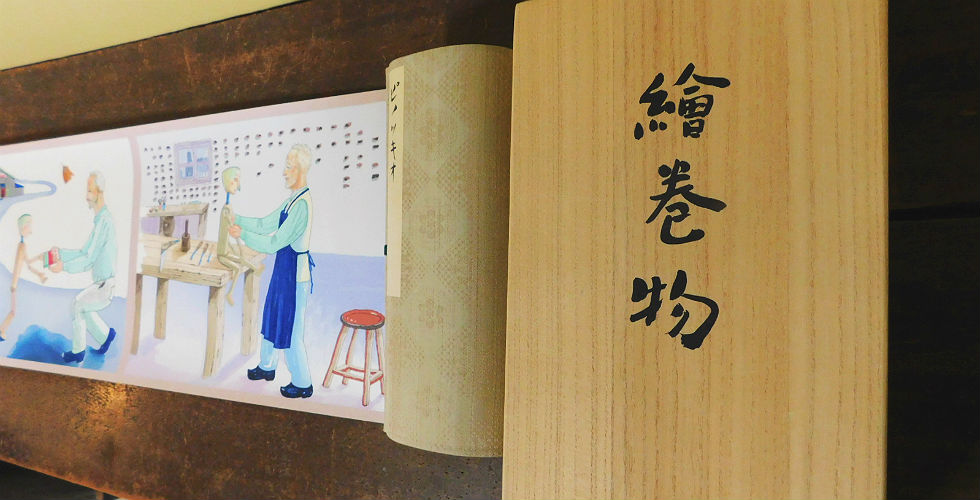 繪巻物
ピノッキオ